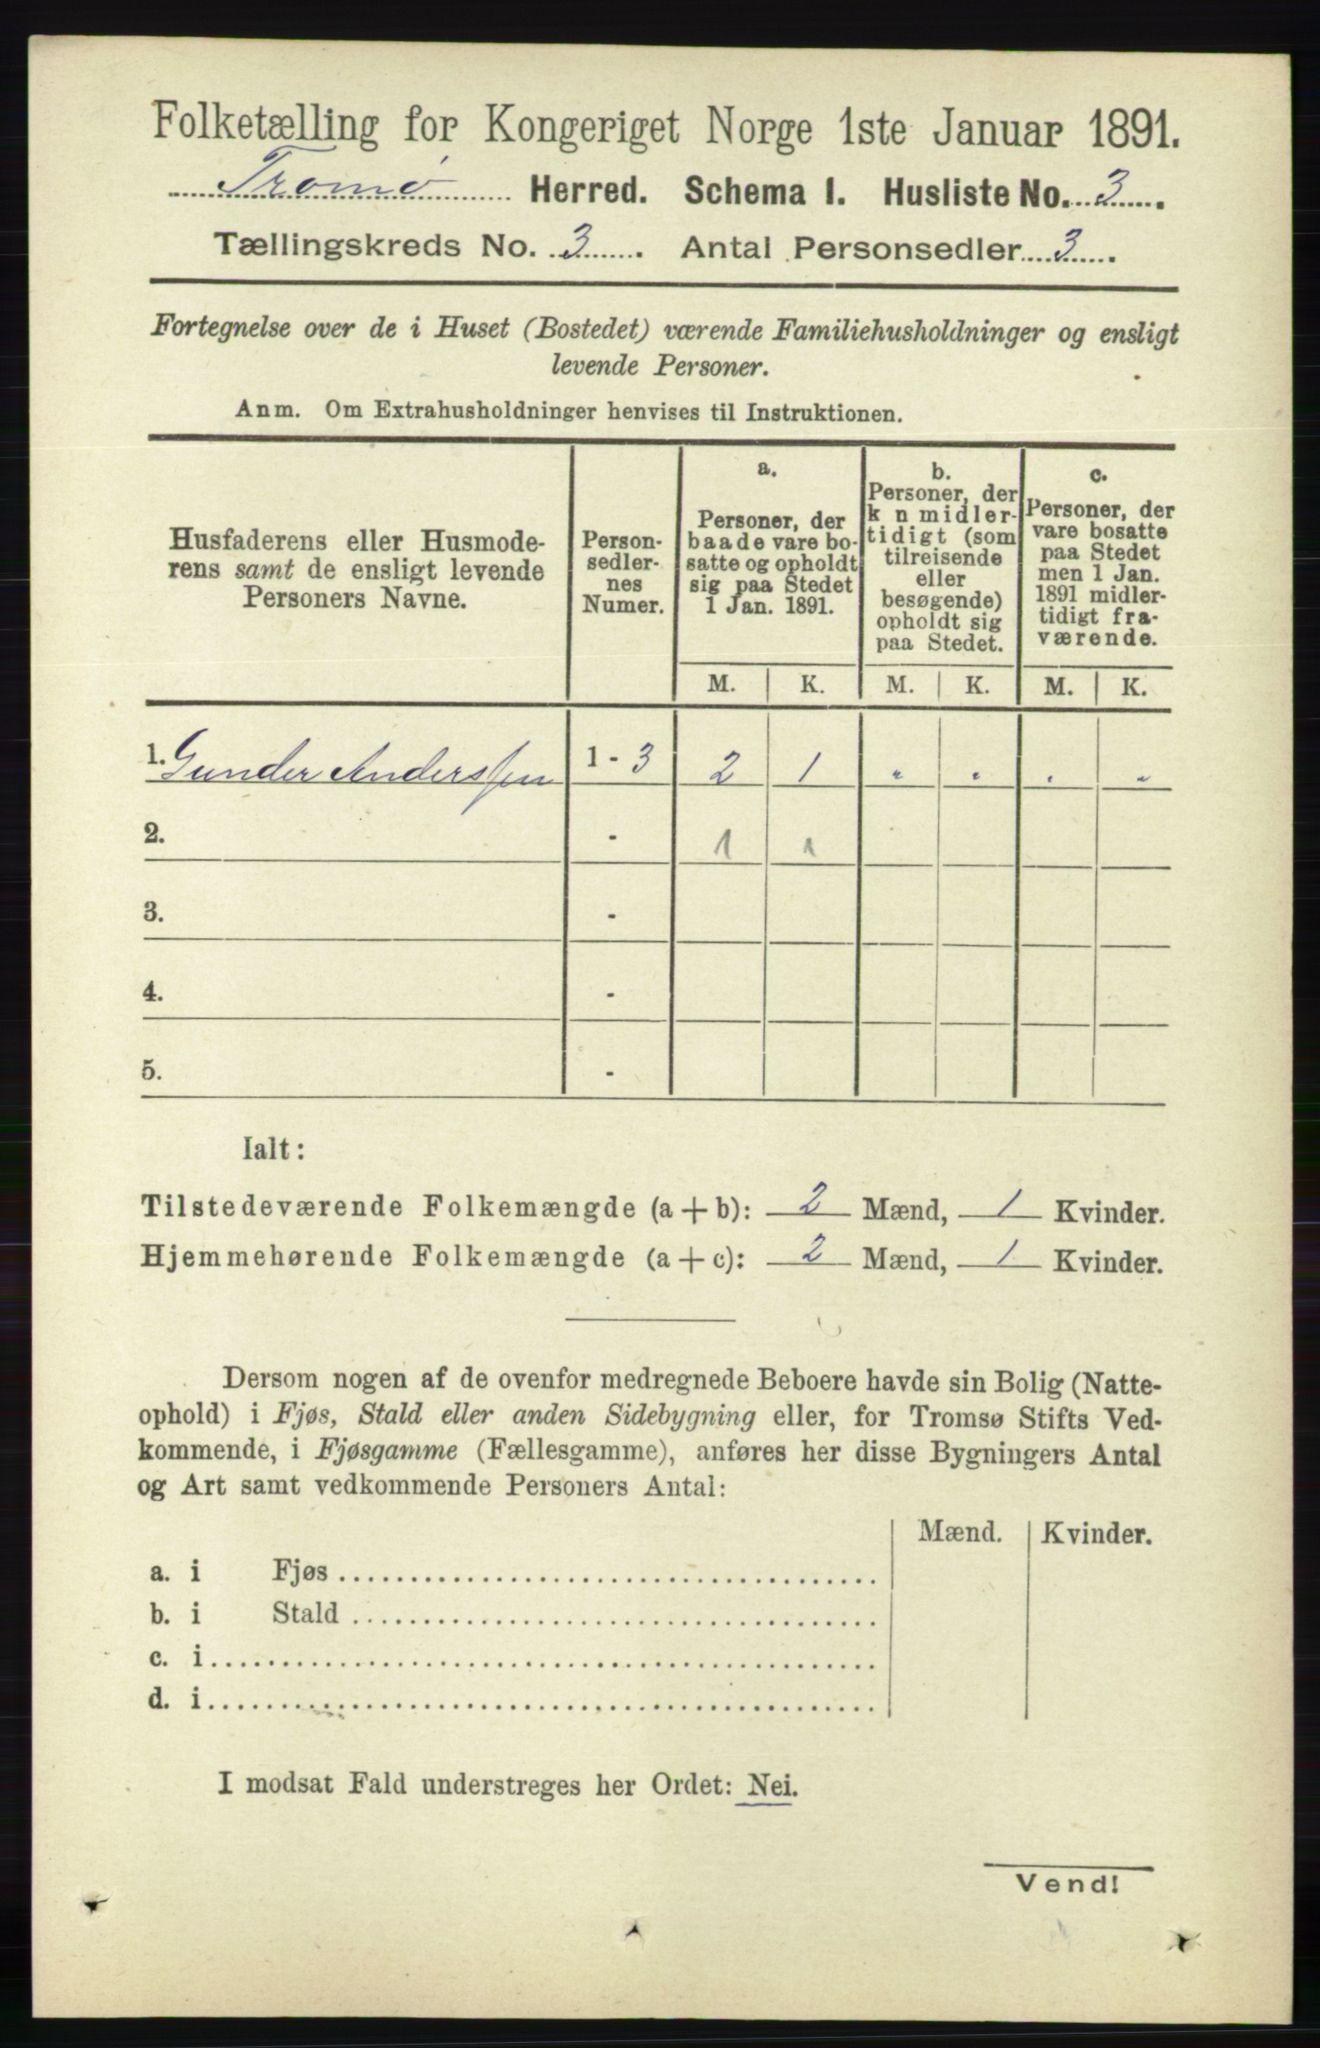 Folketælling for Kongeriget Norge 1ste Januar 1891.
Tromø Herred. Schema I. Husliste No. 3.
Tællingskreds No. 3. Antal Personsedler 3.
Fortegnelse over de i Huset (Bostedet) værende Familiehusholdninger og ensligt
levende Personer.
Anm. Om Extrahusholdninger henvises til Instruktionen.
Husfaderens eller Husmode-
rens samt de ensligt levende
Personers Navne.
Person-
sedler-
nes
Numer.
a.
Personer, der
baade vare bo-
satte og opholdt
sig paa Stedet
1 Jan. 1891.
b.
Personer, der
k n midler-
tidigt (som
tilreisende
eller
besøgende)
opholdt sig
paa Stedet.
c.
Personer, der
vare bosatte
paa Stedet
men 1 Jan.
1891 midler-
tidigt fra-
værende.
M. K. M. K. M. K.
1. Gunder Anderssen 1 - 3 2 1 " " " "
2. - 1 1
3. -
4. -
5. -
Ialt:
Tilstedeværende Folkemængde (a + b): 2 Mænd, 1 Kvinder.
Hjemmehørende Folkemængde (a + c): 2 Mænd, 1 Kvinder.
Dersom nogen af de ovenfor medregnede Beboere havde sin Bolig (Natte-
ophold) i Fjøs, Stald eller anden Sidebygning eller, for Tromsø Stifts Ved-
kommende, i Fjøsgamme (Fællesgamme), anføres her disse Bygningers Antal
og Art samt vedkommende Personers Antal:
Mænd. Kvinder.
a. i Fjøs
b. i Stald
c. i
d. i
I modsat Fald understreges her Ordet: Nei.
Vend!